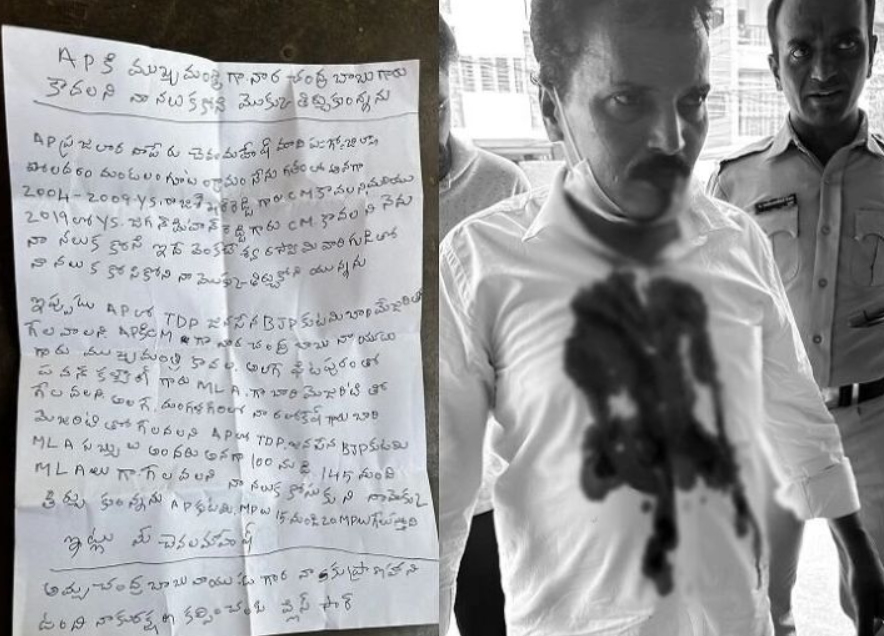 AP కి ముఖ్యమంత్రి గా నార చంద్ర బాబు గారు
కావలని నా నలుక కోసి మొక్కు తీర్చుకుంన్నను
AP ప్రజలారా నాపేరు చెవల మహేష్ మాది ప.గో.జిల్లా
పోలవరం మండలం గుంటాల గ్రామం నేను గతంలో అనగా
2004-2009 YS. రాజశేఖర్ రెడ్డి గారు CM కావలని మరియు
2019లో YS. జగన్ మోహన్ రెడ్డి గారు CM. కావలని నేను
నా నలుక కోసి ఇదే వెంకటేశ్వర స్వామి వారి గుడిలో
నా నలుక కోసికొని నా మొక్కు తీర్చుకొని యున్నను
ఇప్పుడు APలో TDP జనసేన BJP కుటమి బారి మెజరిటీ
గెలవాలని APకి CM గా నార చంద్ర బాబు నాయుడు
గారు ముఖ్యమంత్రి కావల. అలగె పిటపురంతో
పవన్ కళ్యాణ్ గారు MLA. గా బారి మెజరిటి తో
గెలవలని. అలగె, మంగళగిరిలో నారలోకేష్ గారు బారి
మెజరిటి తో గెలవలని APలో TDP. జనసేన BJP కుటమి
MLA అందరు అనగా 100 నుడి. 145 మంది
MLAలు గా గెలవలని నా నలుక కోసుకుని నా మొక్కు
తీర్చుకుంన్నను AP కుటమి. MPలు 15 నుండి 20 MPలు గెలుస్తారు
ఇట్లు మీ చెవలమహేష్
అయ్య చంద్ర బాబు నాయుడు గారు నాకు ప్రాణహాని
ఉంది నాకు రక్షణ కల్పించండి ప్లీస్ సార్